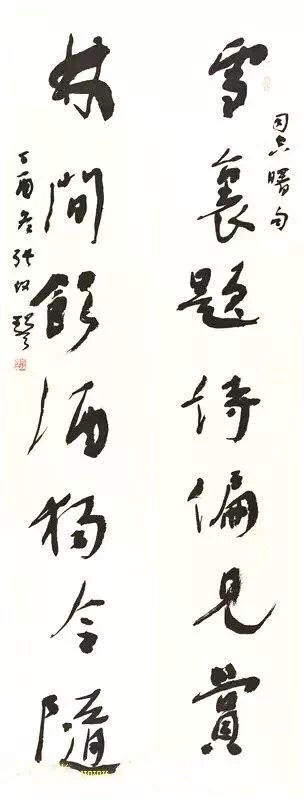 司空曙句
雪裏題詩偏見賞
林間飲酒獨令隨
丁酉冬張